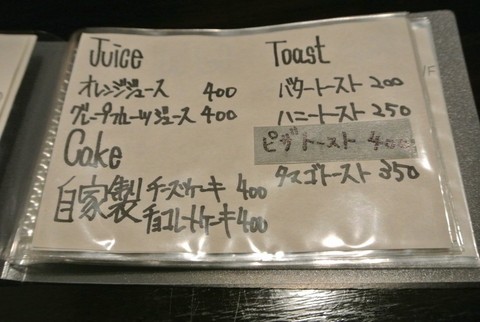 Juice
オレンジジュース 400
グレープフルーツジュース 400
Cake
自家製 チーズケーキ 400
チョコレートケーキ 400
Toast
バタートースト 200
ハニートースト 250
ピザトースト 400
タマゴトースト 350